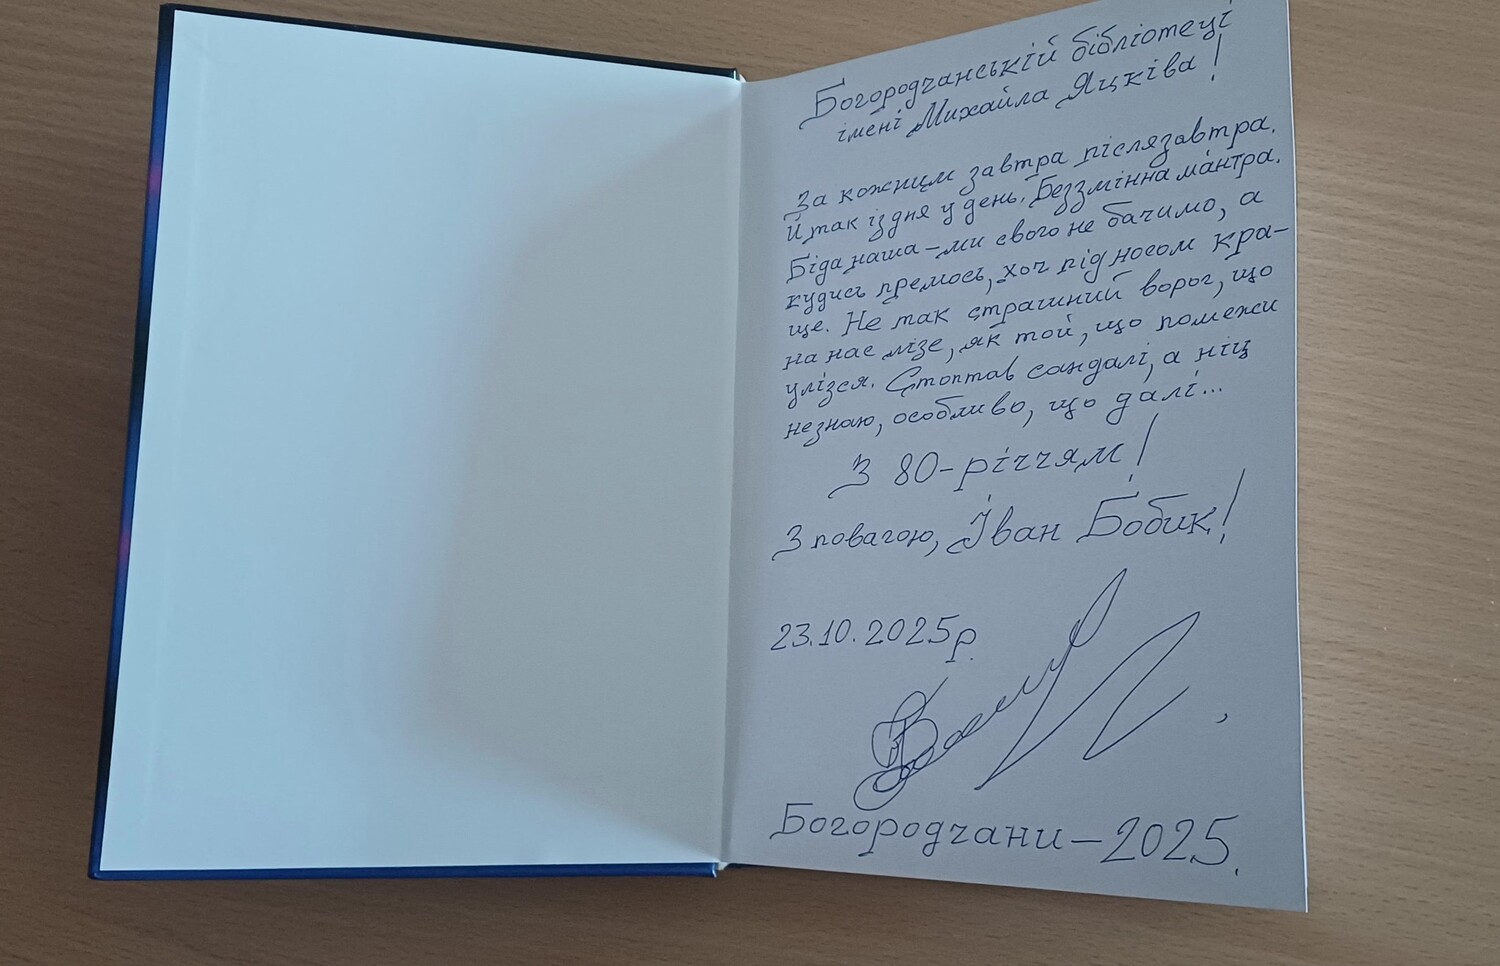 Богородчанській бібліотеці
імені Михайла Яцківа!
За кожним завтра післязавтра.
Й так із дня у день. Беззмінна ма́нтра.
Біда наша – ми свого не бачимо, а
кудись премось, хоч під носом кра-
ще. Не так страшний ворог, що
на нас лізе, як той, що помежи
улізся. Стоптав сандалі, а ніц
не знаю, особливо, що далі...
З 80-річчям!
З повагою, Іван Бобик!
23.10.2025р.
Богородчани – 2025.